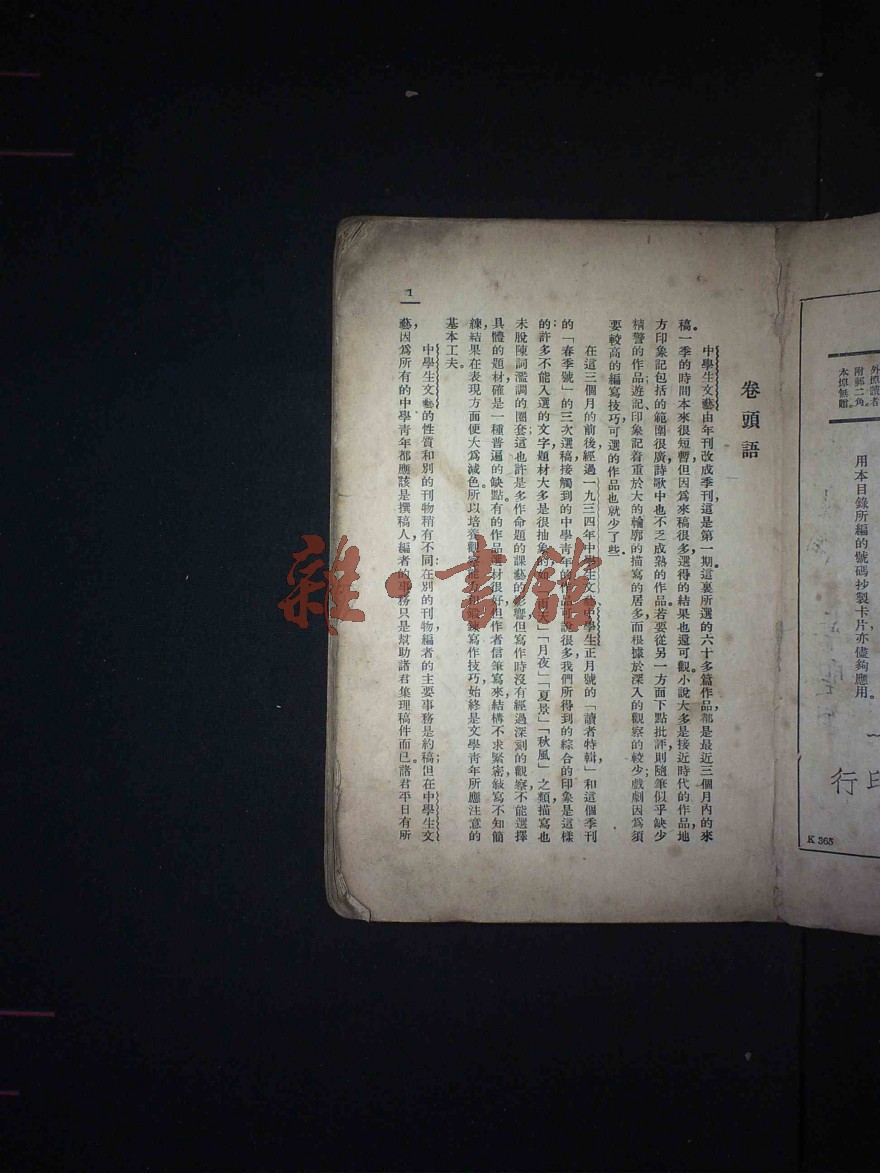 外埠讀者
附郵二角。
本埠無贈。
用本目錄所編的號碼抄製卡片亦儘夠應用。
印行
K 365
卷頭語
中學生文藝由年刊改成季刊,這是第一期。這裏所選的六十多篇作品,都是最近三個月內的來
稿。一季的時間本來很短暫,但因爲來稿很多,選得的結果也還可觀。小說大多是接近時代的作品,地
方印象記包括的範圍很廣,詩歌中也不乏成熟的作品。若要從另一方面下點批評,則隨筆似乎缺少
精警的作品,遊記印象記着重於大的輪廓的描寫的居多,而根據於深入的觀察的較少;戲劇因爲須
要較高的編寫技巧,可選的作品也就少了些。
在這三個月的前後,經過一九三四年中學生文藝,中學生正月號的「讀者特輯」和這個季刊
的「春季號」的三次選稿,接觸到的中學青年的作品可說很多,我們所得到的綜合的印象是這樣
的:許多不能入選的文字,題材大多是很抽象的,如「雨天」「月夜」「夏景」「秋風」之類,描寫也
未脫陳詞濫調的圈套,這也許是多作命題的課藝的影響,但寫作時沒有經過深刻的觀察,不能選擇
具體的題材,確是一種普遍的缺點。有的作品選材很好,但作者信筆寫來,結構不求緊密,敍寫不知簡
練,結果在表現方面便大爲減色。所以培養觀察能力和鍛鍊寫作技巧,始終是文學青年所應注意的
基本工夫。
中學生文藝的性質和別的刊物稍有不同:在別的刊物,編者的主要事務是約稿;但在中學生文
藝,因爲所有的中學青年都應該是撰稿人,編者的事務只是幫助諸君集理稿件而已。諸君平日有所
1
雜·書館